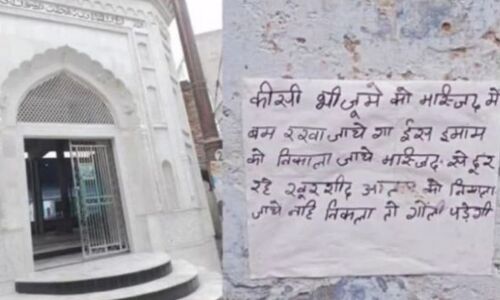 कीसी भी जूमे को मस्जिद में
बम रखा जाये गा ईस इमाम
को निकाला जाये मस्जिद से दूर
रहे खूरशीद को निकाला
जाये नहि निकला तो गोली पड़ेगी